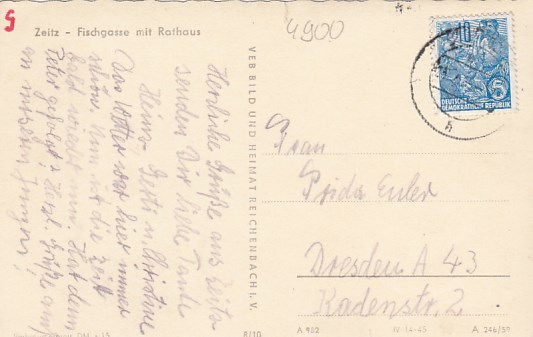 5
4900
Zeitz - Fischgasse mit Rathaus
Herzliche Grüße aus Zeitz
senden Dir liebe Tante
Heinz Gerti u. Christine
Das Wetter war hier immer
schön. Nun ist die Zeit
bald wieder rum. Hat denn
Peter gefolgt? Herzl. Grüße auch
an unseren Jungen!
VEB BILD UND HEIMAT REICHENBACH I. V.
10
DEUTSCHE
DEMOKRATISCHE REPUBLIK
5
Frau
Frida Euler
Dresden A 43
Kadenstr. 2
8/10
A 982
IV-14-45
A 246/59